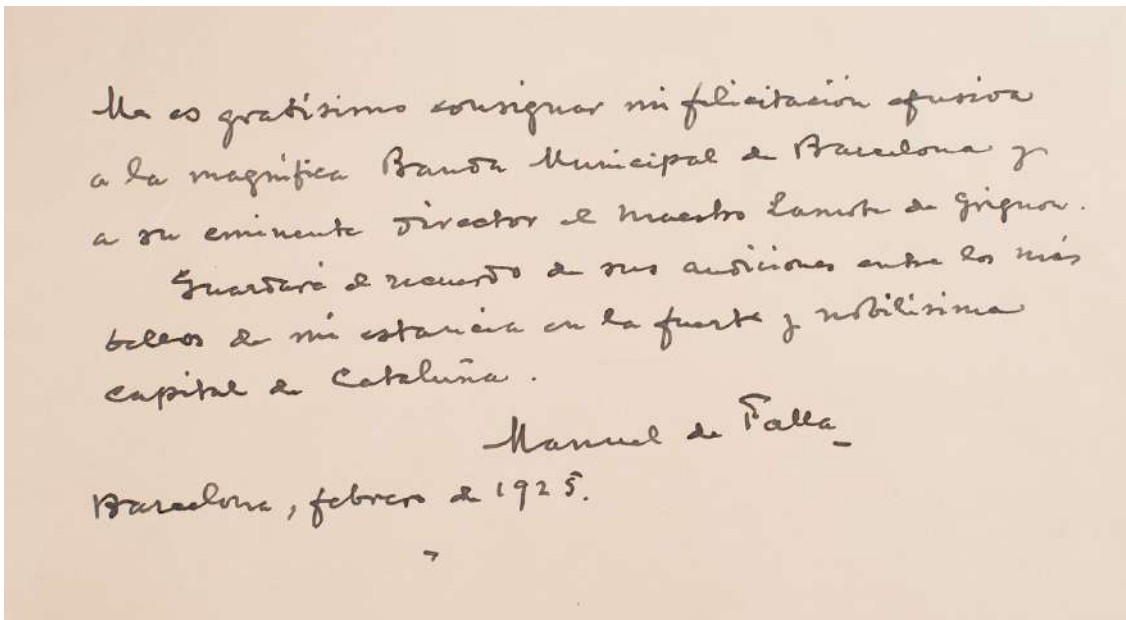 Me es gratísimo consignar mi felicitación efusiva
a la magnífica Banda Municipal de Barcelona y
a su eminente Director el Maestro Lamote de Grignon.
Guardaré el recuerdo de sus audiciones entre los más
bellos de mi estancia en la fuerte y nobilísima
capital de Cataluña.
Manuel de Falla
Barcelona, febrero de 1925.